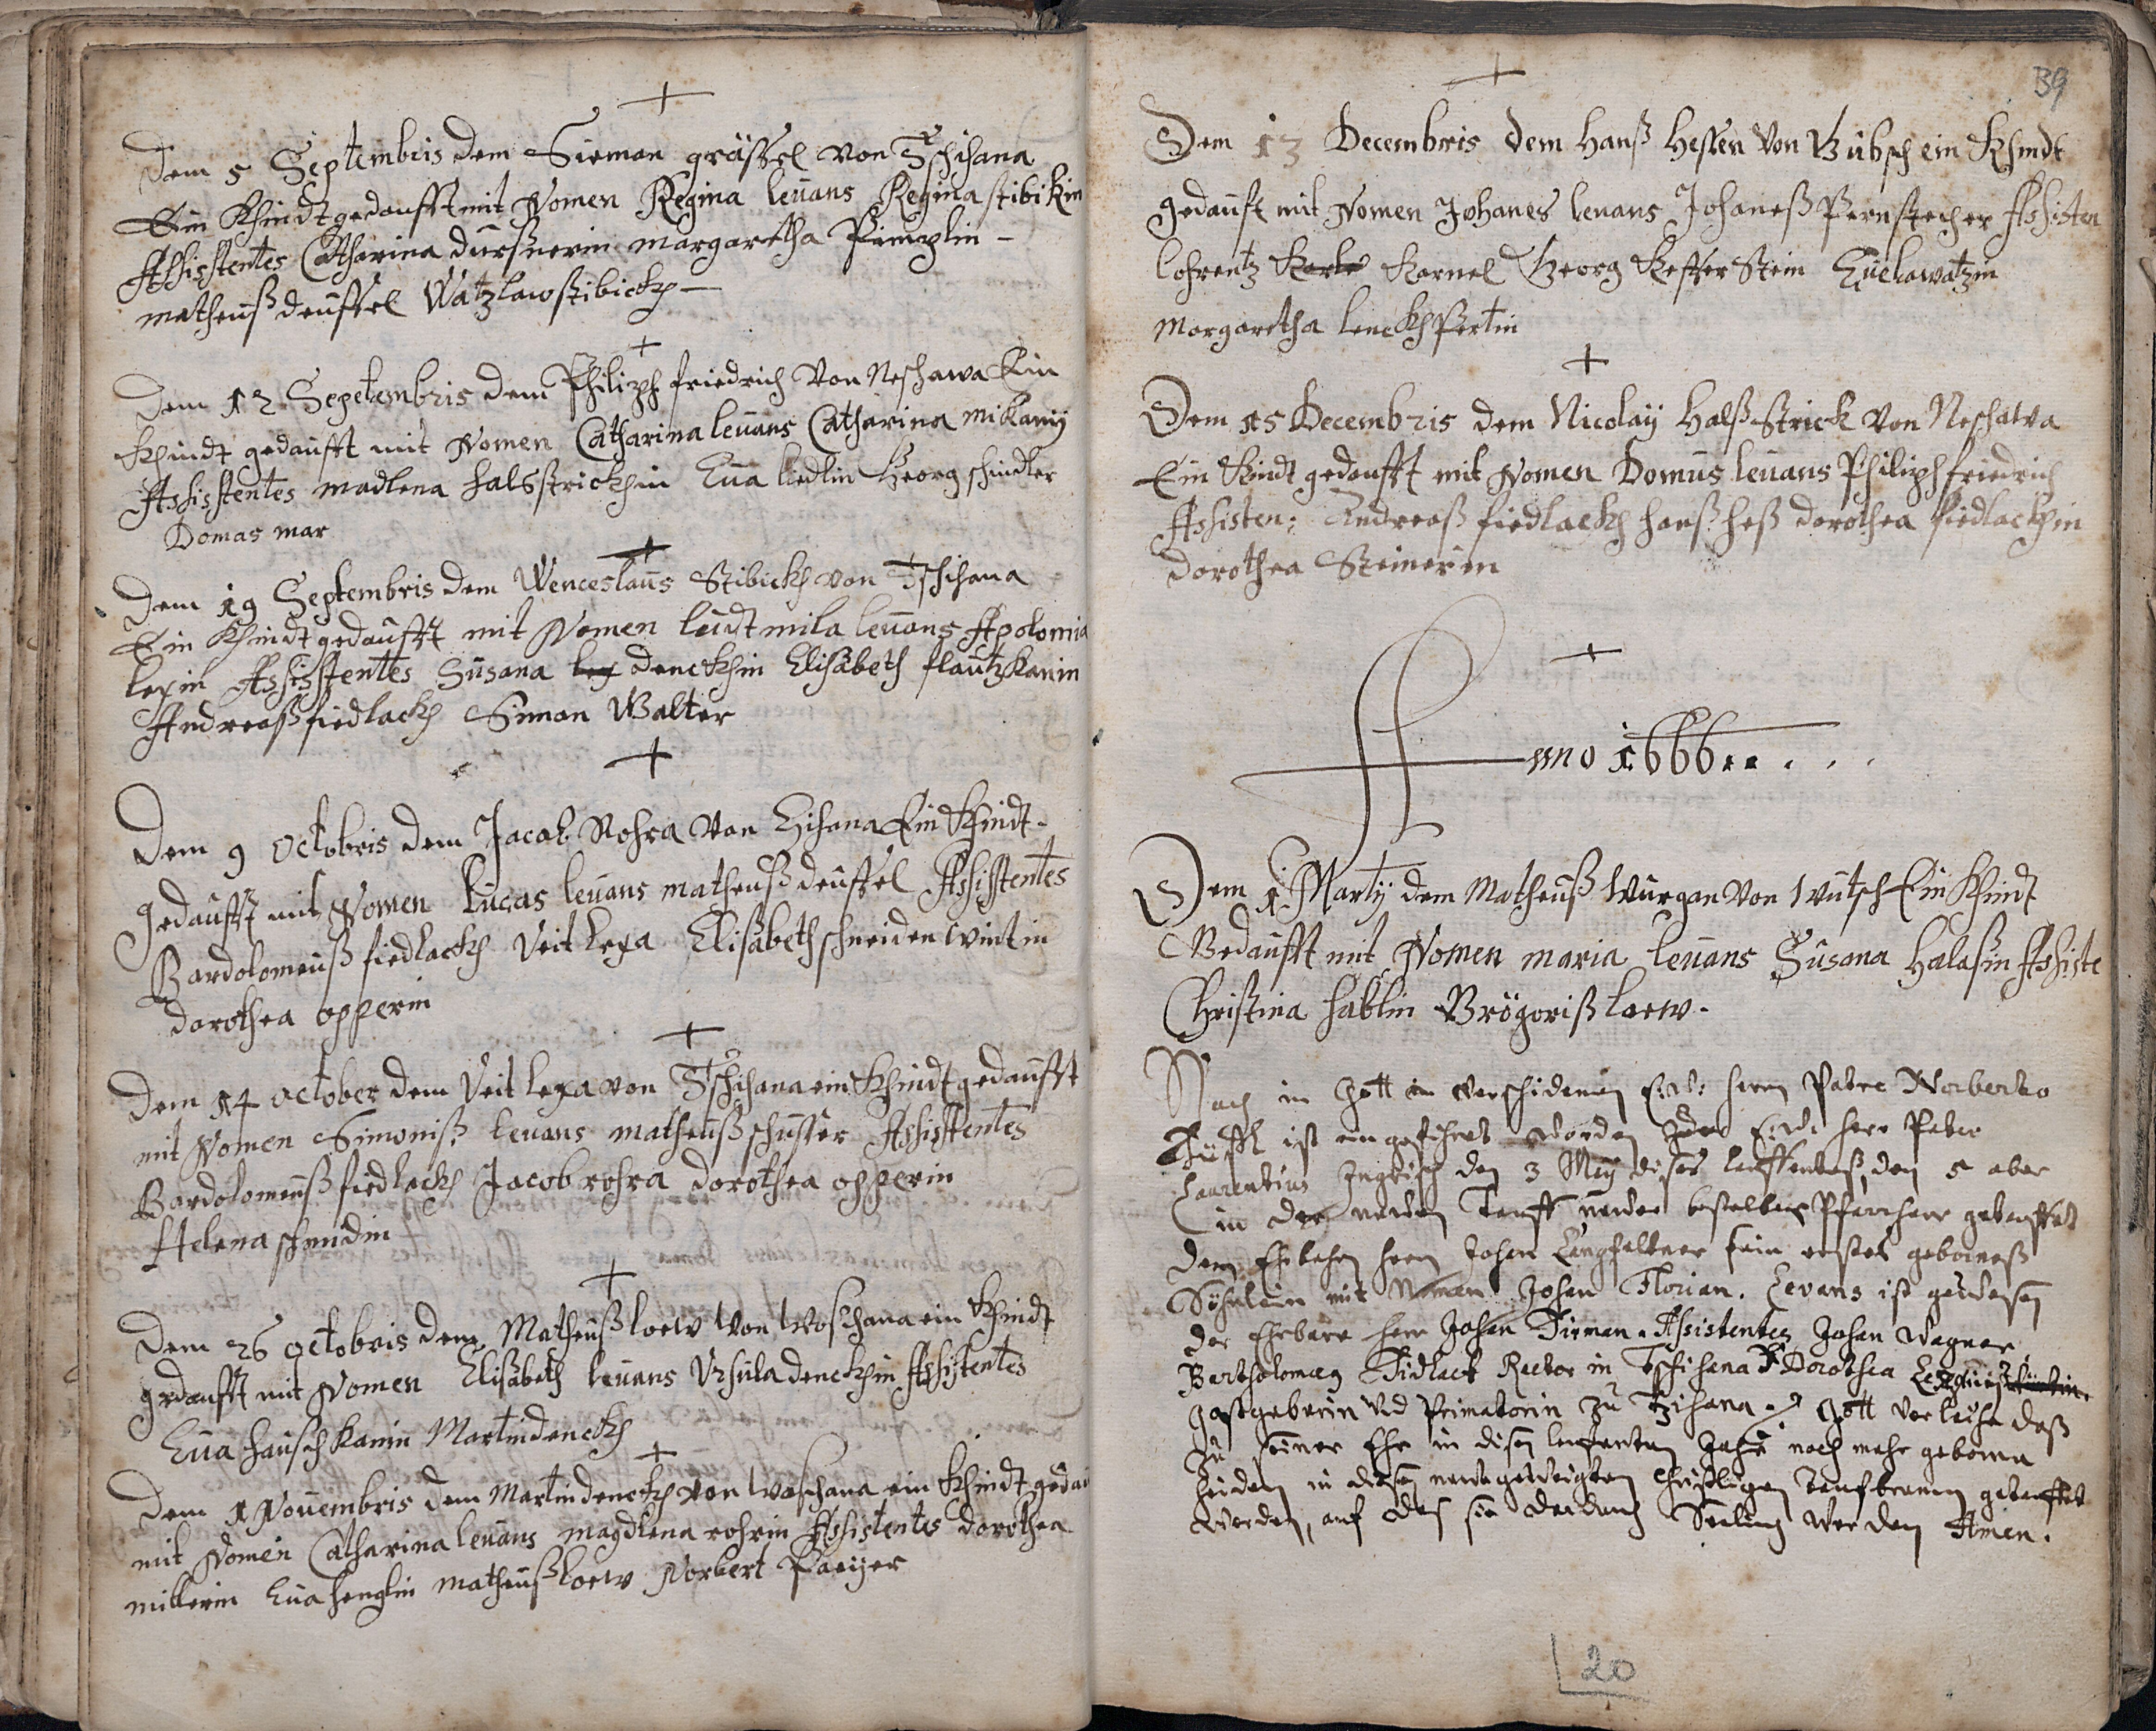 +
Dem 5 Septembris dem Sieman gräffel von Tschihana
Ein Khindt gedaufft mit Nomen Regina leuans Regina stibikin
Assisstentes Catharina durßnerin margaretha Pimplin -
matheuß deuffel Watzlaw stibickh -
+
Dem 12 Sepetembris dem Philiph friedrich von Neschawa Ein
Khindt gedaufft mit Nomen Catharina leuans Catharina mikaniÿ
Assisstentes madlena halsstrickhin Eua liedlin Georg schindler
Domas mar
+
Dem 19 Septembris dem Wenceslaus Stibickh von Tschihana
Ein Khindt gedaufft mit Nomen leudtmila leuans Apolomia
lexin Assisstentes Susana lex denckhin Elisabeth flautzkanin
Andreaß fiedlackh Simon Walter
+
Dem 9 Octobris dem Jacob Rohra von Zihana Ein Khindt -
gedaufft mit Nomen Lucas leuans matheuß deuffel Assisstentes
Bardolomeuß fiedlackh Veit lexa Elisabeth schneiden wintin
dorothea opperin
+
Dem 14 october dem Veit lexa von Tschihana ein Khindt gedaufft
mit Nomen Simoniß leuans matheuß schuster Assisstentes
Bardolomeuß fiedlackh Jacob rohra dorothea opperin
Helena schmidin
+
Dem 26 octobris dem Matheuß loew von Woschana ein Khindt
gedaufft mit Nomen Elisabeth leuans Ursula denckhin Assistentes
Eua hauschkanin Martin denckh
+
Dem 1 Nouembris dem Martin denckh von Woschana ein Khindt gedau
mit Nomen Catharina leuans magdlena rohrin Assistentes dorothea
millerin Eua henglin matheuß loew Norbert
39
+
Dem 13 Decembris dem Hanß Hessen von Bubsch ein Khindt
gedauft mit Nomen Johanes leuans Johaneß Pernstecher Assisten
lohrentz Karle Karnel Georg Kesserstein
Margaretha lenckhartin
+
Dem 15 Decembris dem Nicolaÿ Halßstrick von Neschawa
Ein Kindt gedaufft mit Nomen Domus leuans Philiph friedrich
Assisten: Andreaß fiedlackh hanß heß dorothea fiedlackhin
dorothea Steinerin
+
Anno 1666 . . . . .
Dem 1 Martÿ dem Matheuß Wurgan von Wutsch Ein Khindt
Gedaufft mit Nomen maria leuans Susana Halaßin Assiste
Christina hablin Grögoriß loew -
Nach in Gott verschidenen herrn Patre Norberto
ist eingeführet worden herr Pater
Laurentius den 3 Maÿ dises lauffenteß, den 5 aber
in der neuen Tauff bestelter Pfarrherr getauffet
dem Ehrbahren herrn Johan sein erstes gebornes
Söhnlein mit Nomen Johan Florian. Levans ist gewesen
der Ehrbare herr Johan Dirman. Assistentes Johan Wagner
Bartholomæy Fidlack Rector in Tschihana Dorothea
gastgeberin und Primatorin zu Tzihana. Gott verleihe daß
zu seiner Ehr in disen lauffenten Jahr noch mehr geborne
heiden in disen Christligen Taufbrunn getauffet
werden, auf das sie dardurch Seelig werden Amen.
20